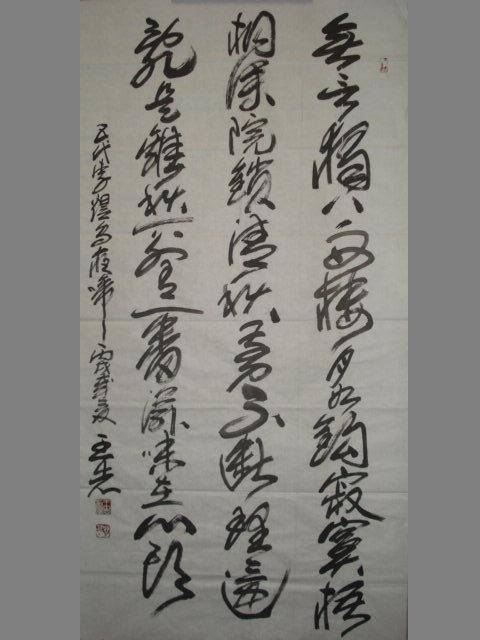 無言獨上西樓月如鉤寂寞梧
桐深院鎖清秋剪不斷理還
亂是離愁別是一番滋味在心頭
五代李煜烏夜啼丙戌歲夏